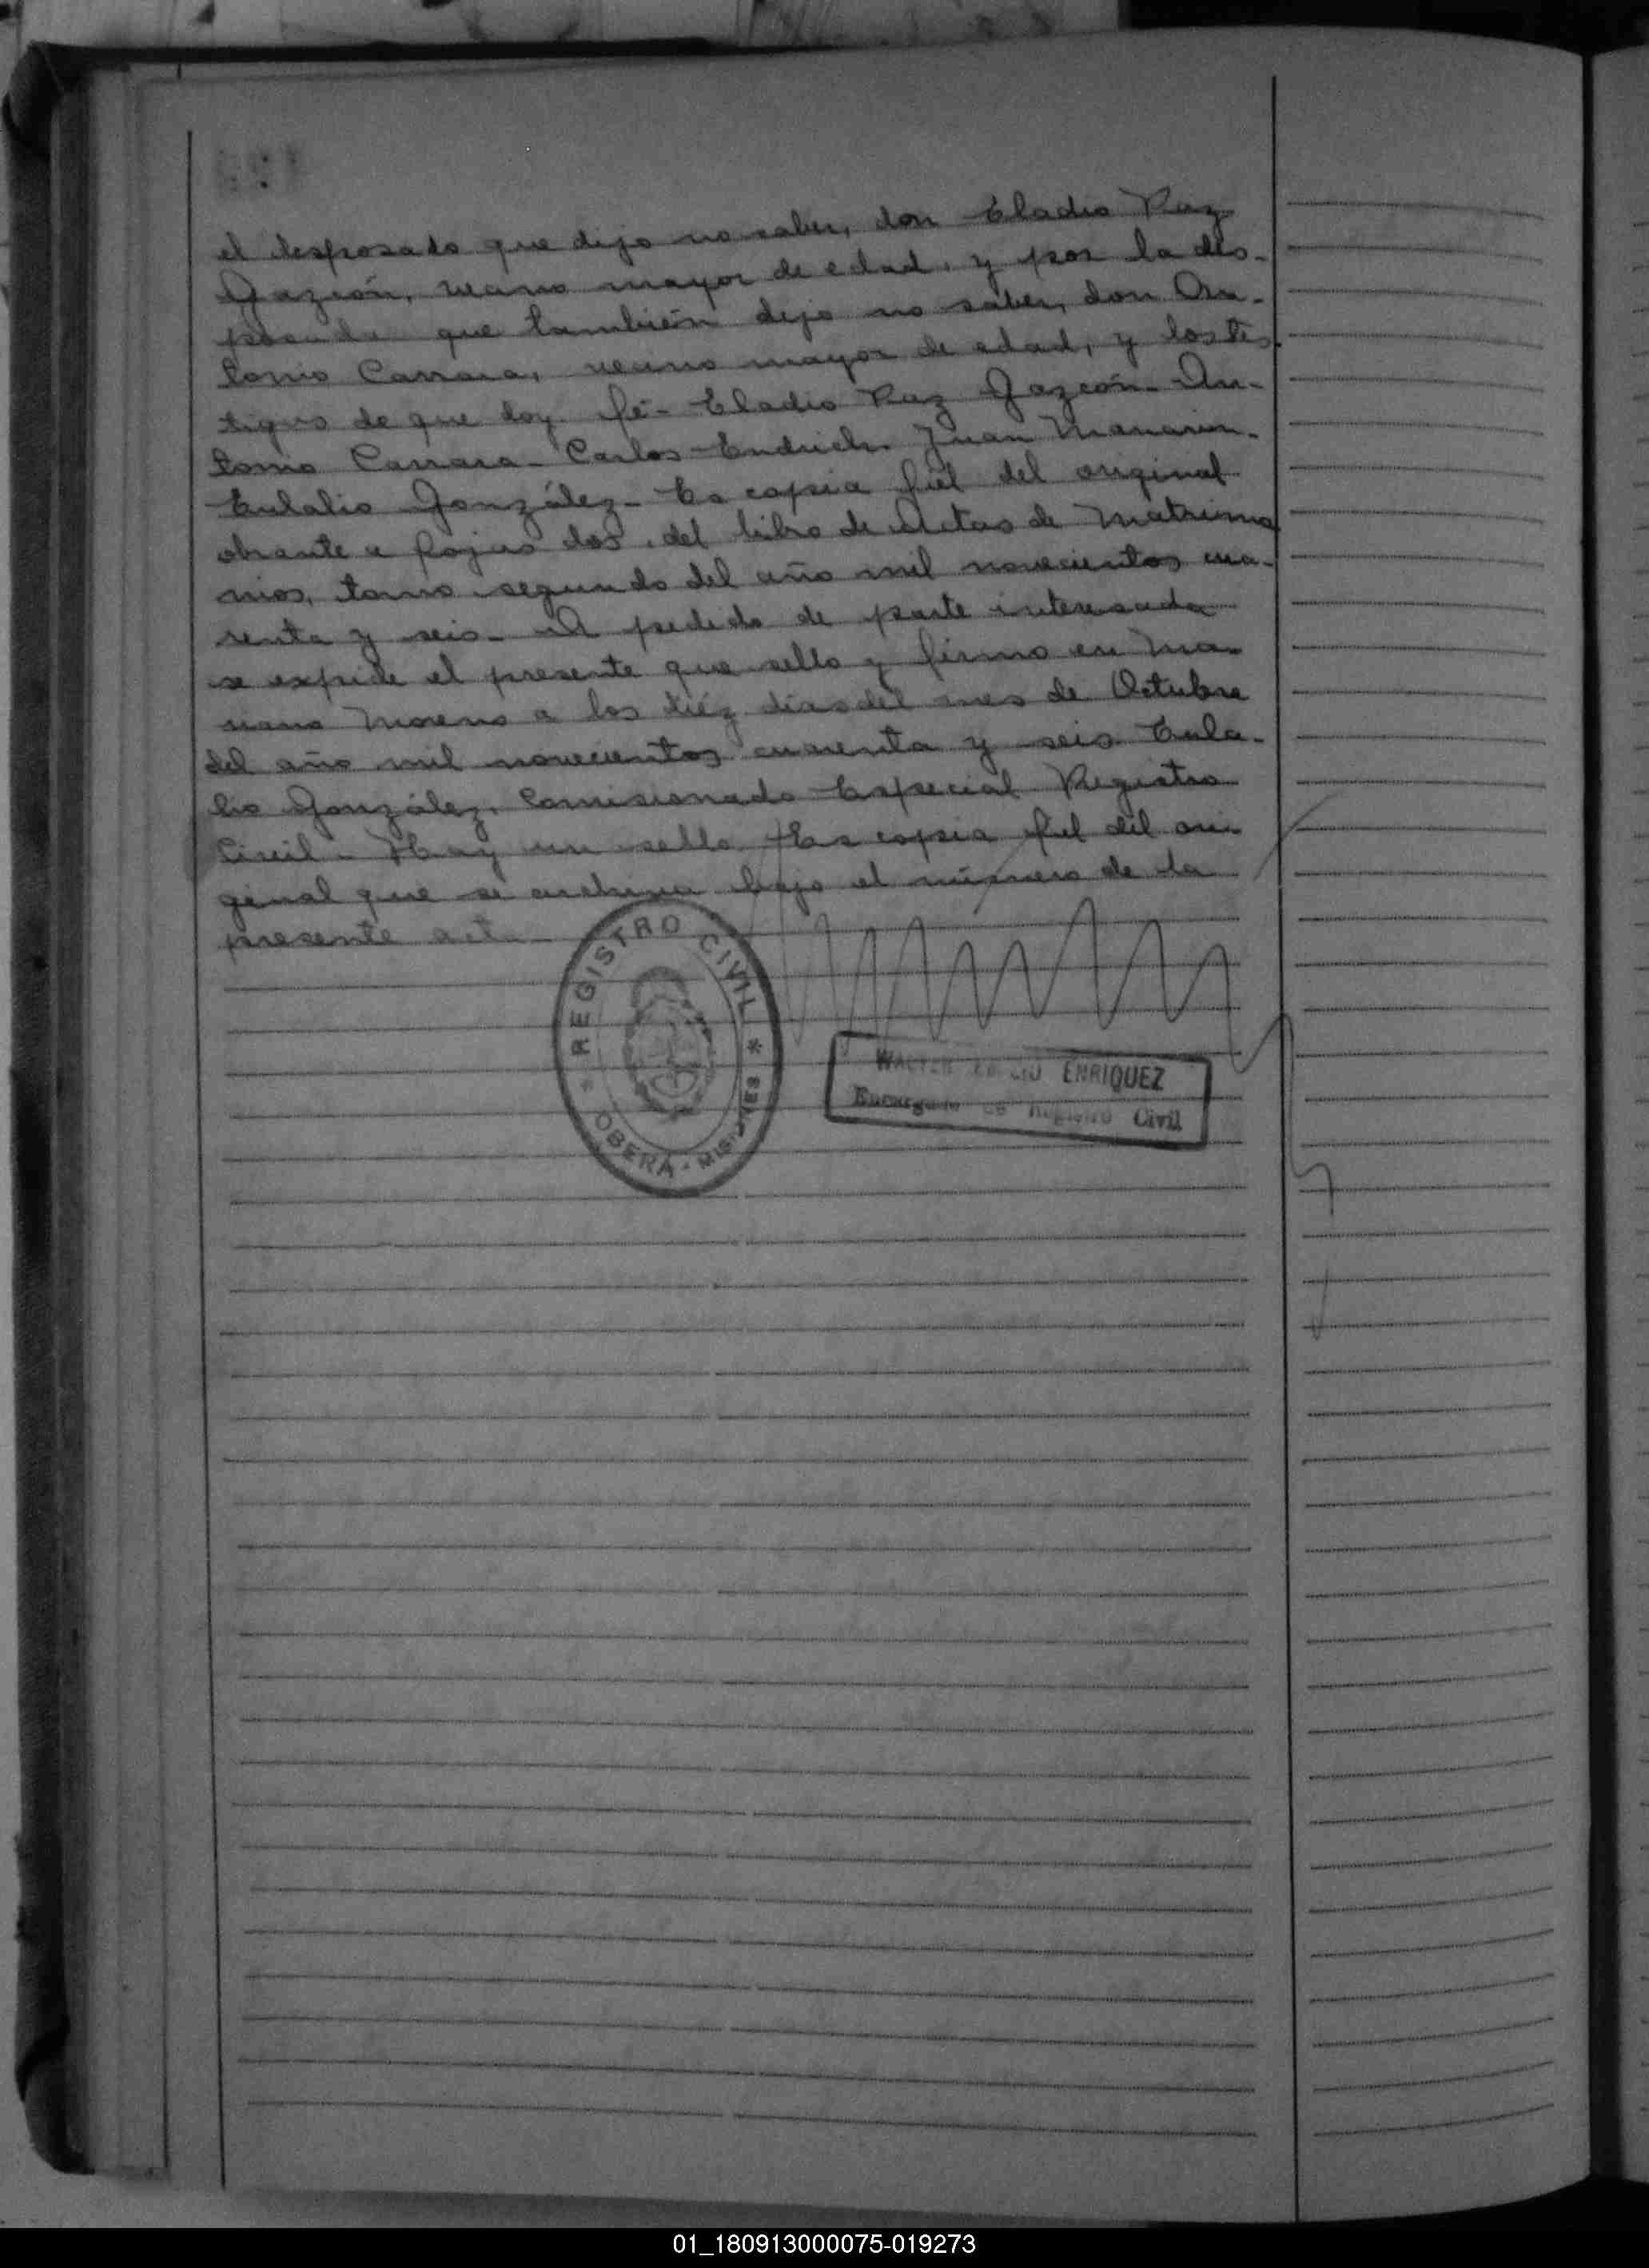 el desposado que dijo no saber, don Eladio Paz
Gazcón, vecino mayor de edad, y por la des-
posada que también dijo no saber, don An-
tonio Carrara, vecino mayor de edad, y los tes
tigos de que doy fé- Eladio Paz Gazcón- An-
tonio Carrara- Carlos Endrich. Juan
Eulalio González- Es copia fiel del original
obrante a fojas dos, del libro de Actas de Matrimo
nios, tomo segundo del año mil novecientos cua-
renta y seis- A pedido de parte interesada
se expide el presente que sello y firmo en Ma-
riano Moreno a los diéz dias del mes de Octubre
del año mil novecientos cuarenta y seis. Eula-
lio González, Comisionado Especial Registro
Civil- Hay un sello. Es copia fiel del ori-
ginal que se archiva bajo el número de la
presente acta
REGISTRO CIVIL
OBERÁ - MISIONES
WALTER ENRIQUEZ
Encargado de Registro Civil
01_180913000075-019273